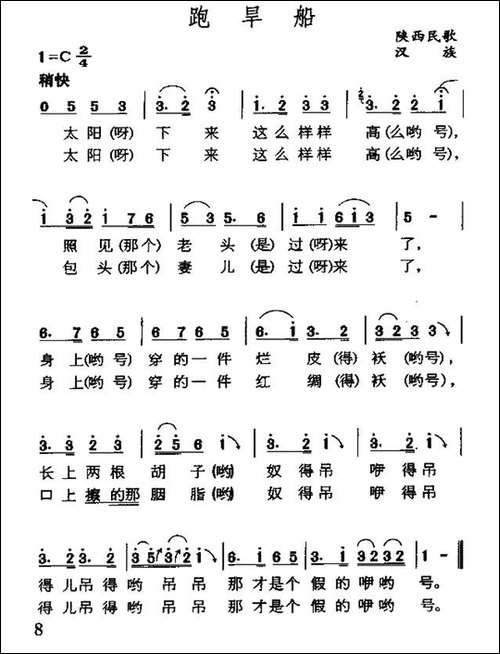 跑旱船
陕西民歌
1=C 2/4
汉族
稍快
0 5 5 3 3. 2 3 1. 2 3 3 3. 2 2 1
太阳(呀) 下来 这么样样 高(么哟号),
太阳(呀) 下来 这么样样 高(么哟号),
1 3 2 1 7 6 5 3 5. 6 1 1 6 1 3 5 -
照见(那个) 老头(是) 过(呀)来 了,
包头(那个) 妻儿(是) 过(呀)来 了,
6. 7 6 5 6 7 6 5 6. 1 3. 2 3 2 3 3
身上(哟号) 穿的一件 烂皮(得) 袄(哟号),
身上(哟号) 穿的一件 红绸(得) 袄(哟号),
3. 2 2 3 2 5 6 1 3. 2 1 3. 2 1
长上两根 胡子(哟) 奴得吊 咿得吊
口上擦的那 胭脂(哟) 奴得吊 咿得吊
3. 2 3. 2 3 5 3 2 1 6. 1 6 5 3. 1 3 2 3 2 1 -
得儿吊得哟 吊吊 那才是个 假的咿哟 号。
得儿吊得哟 吊吊 那才是个 假的咿哟 号。
8